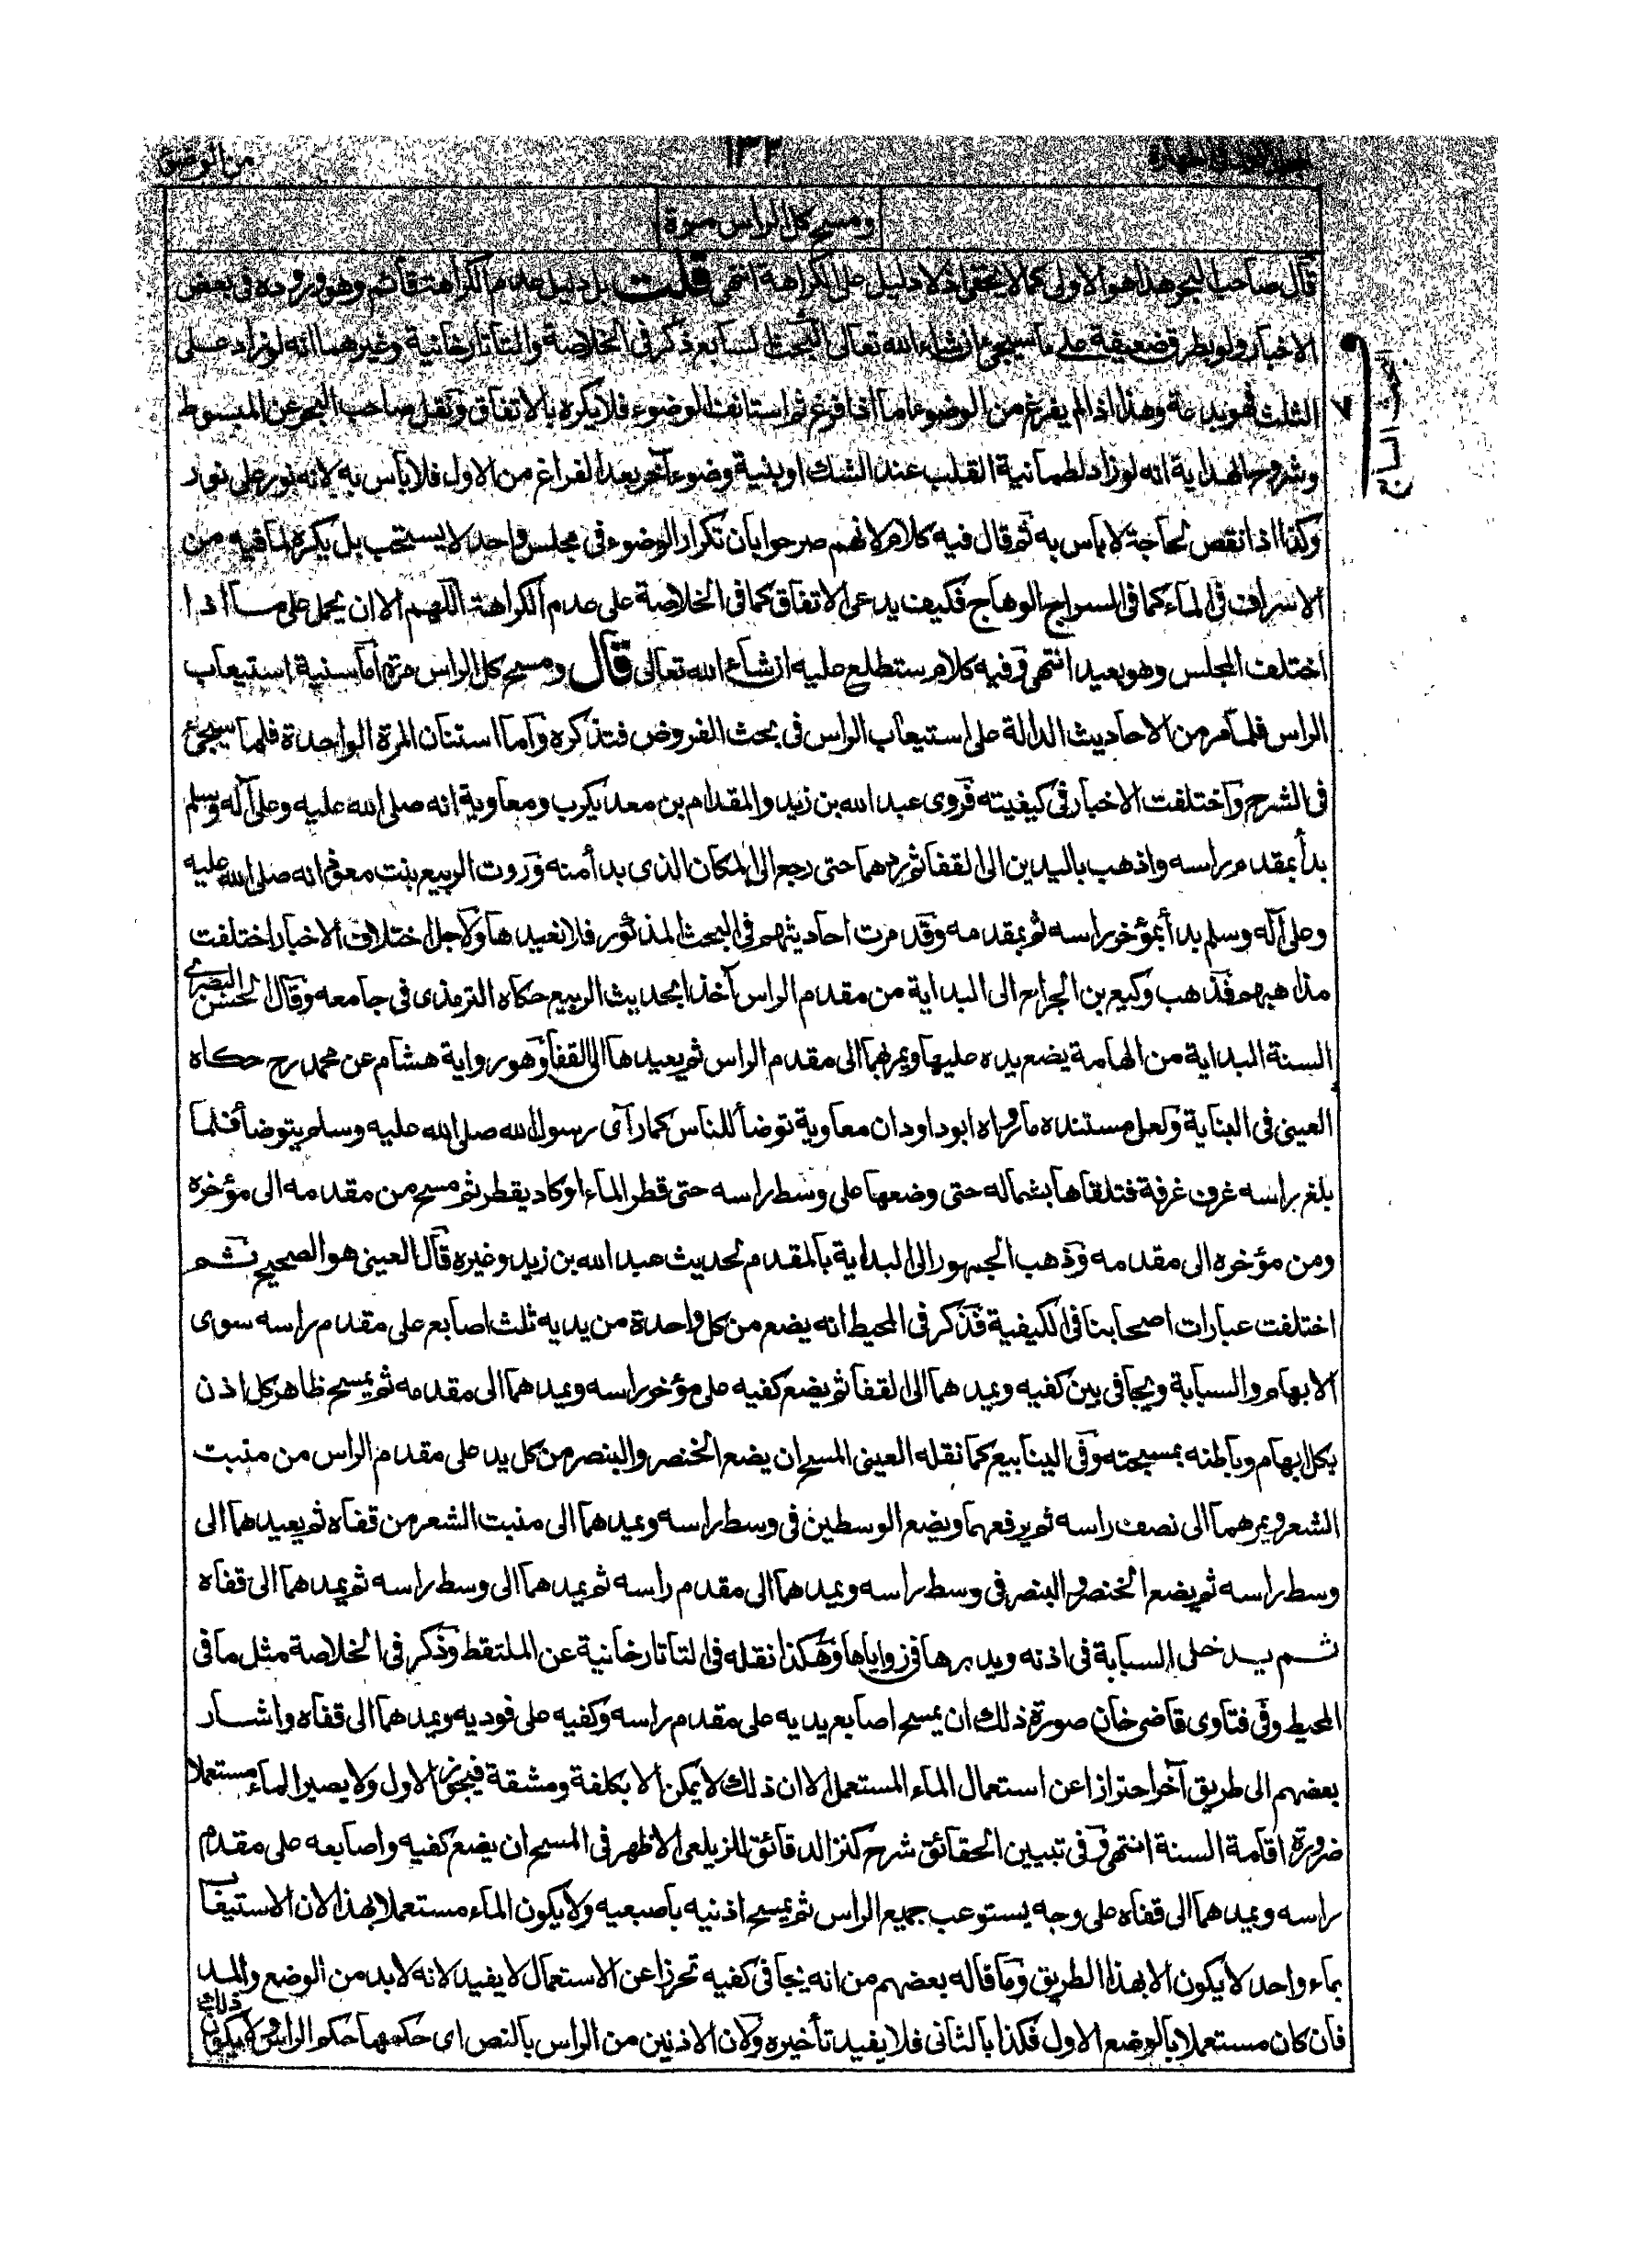 ١٣٢
ومسح كل الراس مرة
قال صاحب البحر هذا هو الاولى كما لا يخفى اذ لا دليل على الكراهة انتهى قلت بل دليل عدم الكراهة قائم وهو وروده فى بعض
الاخبار ولو بطرق ضعيفة على ما سيجئ ان شاء الله تعالى البحث السابع ذكر فى الخلاصة والتاتارخانية وغيرهما انه لو زاد على
الثلث فهو بدعة وهذا اذا لم يفرغ من الوضوء اما اذا فرغ ثم استانف الوضوء فلا يكره بالاتفاق ونقل صاحب البحر عن المبسوط
وشروح الهداية انه لو زاد لطمانية القلب عند الشك او بنية وضوء آخر بعد الفراغ من الاول فلا باس به لانه نور على نور
وكذا اذا نقص لحاجة لا باس به ثم قال فيه كلام لانهم صرحوا بان تكرار الوضوء فى مجلس واحد لا يستحب بل يكره لما فيه من
الاسراف فى الماء كما فى السراج الوهاج فكيف يدعى الاتفاق كما فى الخلاصة على عدم الكراهة اللهم الا ان يحمل على ما اذا
اختلف المجلس وهو بعيد انتهى وفيه كلام ستطلع عليه ان شاء الله تعالى قال ومسح كل الراس مرة اما سنية استيعاب
الراس فلما مر من الاحاديث الدالة على استيعاب الراس فى بحث الفروض فتذكره واما استنان المرة الواحدة فلما سيجئ
فى الشرح واختلفت الاخبار فى كيفيته فروى عبد الله بن زيد والمقدام بن معديكرب ومعاوية انه صلى الله عليه وعلى آله وسلم
بدأ بمقدم راسه واذهب باليدين الى القفا ثم ردهما حتى رجع الى المكان الذى بدأ منه وروت الربيع بنت معوذ انه صلى الله عليه
وعلى آله وسلم بدأ بمؤخر راسه ثم بمقدمه وقد مرت احاديثهم فى البحث المذكور فلا نعيدها ولاجل اختلاف الاخبار اختلفت
مذاهبهم فذهب وكيع بن الجراح الى البداية من مقدم الراس آخذا بحديث الربيع حكاه الترمذى فى جامعه وقال الحسن البصرے
السنة البداية من الهامة يضع يده عليها ويمرهما الى مقدم الراس ثم يعيدها الى القفا وهو رواية هشام عن محمد رح حكاه
العينى فى البناية ولعل مستنده ما رواه ابو داود ان معاوية توضأ للناس كما رآى رسول الله صلى الله عليه وسلم يتوضأ فلما
بلغ براسه غرف غرفة فتلقاها بشماله حتى وضعها على وسط راسه حتى قطر الماء او كاد يقطر ثم مسح من مقدمه الى مؤخره
ومن مؤخره الى مقدمه وذهب الجمهور الى البداية بالمقدم لحديث عبد الله بن زيد وغيره قال العينى هو الصحيح ثم
اختلفت عبارات اصحابنا فى الكيفية فذكر فى المحيط انه يضع من كل واحدة من يديه ثلث اصابع على مقدم راسه سوى
الابهام والسبابة ويجافى بين كفيه ويمدهما الى القفا ثم يضع كفيه على مؤخر راسه ويمدهما الى مقدمه ثم يمسح ظاهر كل اذن
بكل ابهام وباطنه بمسبحته وفى الينابيع كما نقله العينى المسح ان يضع الخنصر والبنصر من كل يد على مقدم الراس من منبت
الشعر ويمرهما الى نصف راسه ثم يرفعهما ويضع الوسطين فى وسط راسه ويمدهما الى منبت الشعر من قفاه ثم يعيدهما الى
وسط راسه ثم يضع الخنصر والبنصر فى وسط راسه ويمدهما الى مقدم راسه ثم يمدهما الى وسط راسه ثم يمدهما الى قفاه
ثم يدخل السبابة فى اذنه ويديرها فى زواياها وهكذا نقله فى التاتارخانية عن الملتقط وذكر فى الخلاصة مثل ما فى
المحيط وفى فتاوى قاضى خان صورة ذلك ان يمسح اصابع يديه على مقدم راسه وكفيه على فوديه ويمدهما الى قفاه واشار
بعضهم الى طريق آخر احترازا عن استعمال الماء المستعمل الا ان ذلك لا يمكن الا بكلفة ومشقة فيجوز الاول ولا يصير الماء مستعملا
ضرورة اقامة السنة انتهى وفى تبيين الحقائق شرح كنز الدقائق للزيلعى الاظهر فى المسح ان يضع كفيه واصابعه على مقدم
راسه ويمدهما الى قفاه على وجه يستوعب جميع الراس ثم يمسح اذنيه باصبعيه ولا يكون الماء مستعملا بهذا لان الاستيفا
بماء واحد لا يكون الا بهذا الطريق وما قاله بعضهم من انه يجافى كفيه تحرزا عن الاستعمال لا يفيد لانه لا بد من الوضع والمد
فان كان مستعملا بالوضع الاول فكذا بالثانى فلا يفيد تأخيره ولان الاذنين من الراس بالنص اى حكمهما حكم الراس ولا يكون ذلك